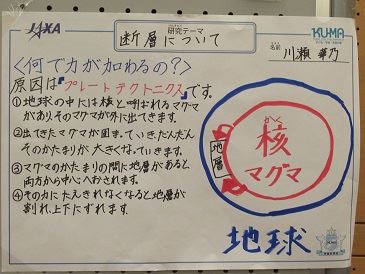 JAXA
研究テーマ
断層について
KU-MA
名前 川瀬 華乃
<何で力が加わるの?>
原因は『プレートテクトニクス』です。
①地球の中には核と呼ばれるマグマ
がありそのマグマが外に出てきます。
②出てきたマグマが固まっていきだんだん
そのかたまりが大きくなっていきます。
③マグマのかたまりの間に地層があると
両方から中心へおされます。
④その力にたえきれなくなると地層が
割れ、上下にずれます。
かく
核
マグマ
地層
地球